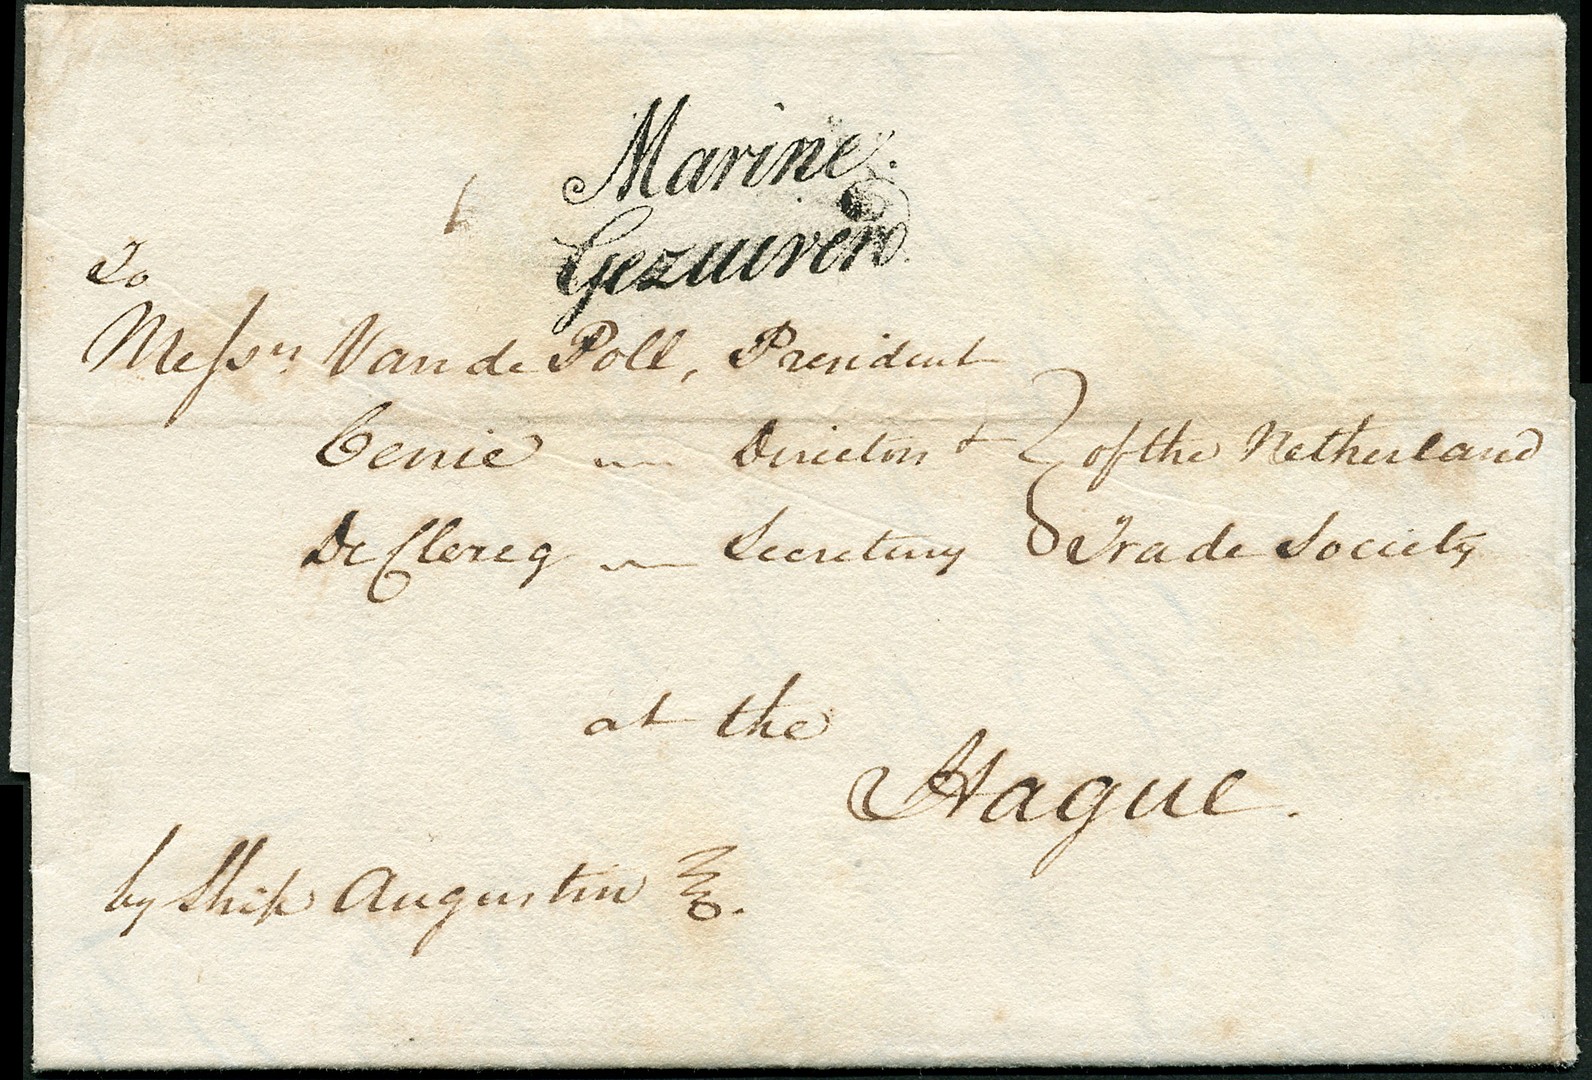 Marine
Gezuiverd
To
Messrs Van de Poll, President
Cenie Director & of the Netherland
De Clercq Secretary Trade Society
at the
Hague.
by Ship Augustin